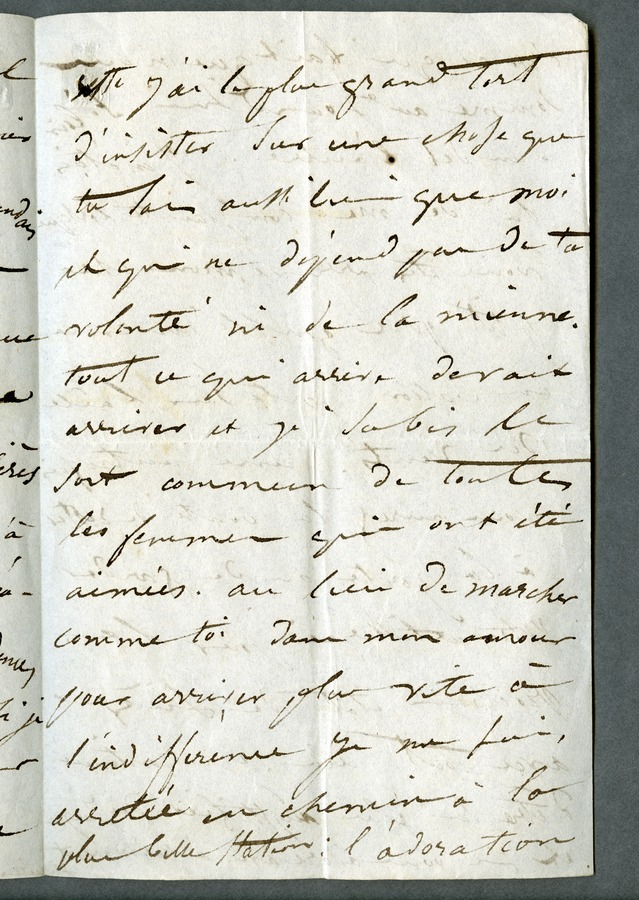 j'ai le plus grand tort
d'insister sur une chose que
tu sais aussi bien que moi
et qui ne dépend pas de ta
volonté ni de la mienne.
tout ce qui arrive devait
arriver et je subis le
sort commun de toutes
les femmes qui ont été
aimées. au lieu de marcher
comme toi dans mon amour
pour arriver plus vite à
l'indifférence je me suis,
arrêtée en chemin à la
plus belle station : l'adoration